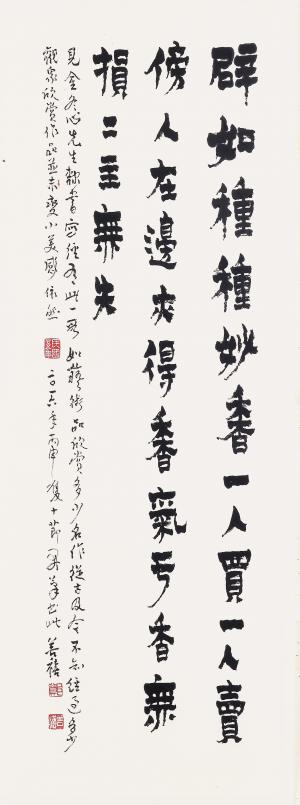 辟如種種妙香一人買一人賣
傍人在邊亦得香氣于香無
損二主無失
見金冬心先生隸書寫經有此一段如藝術品欣賞多少名作從古及今不知經過多少
觀眾欣賞作品並未變小美感依然
二〇一六年丙申雙十節 筆書此 善禧